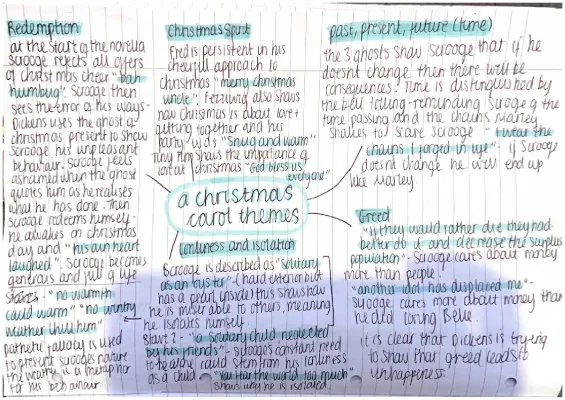 Redemption
at the start of the novella
scrooge rejects all offers
of christmas cheer "bah
humbug". Scrooge then
sees the error of his ways -
Dickens uses the ghost of
christmas present to show
scrooge his unpleasant
behaviour. Scrooge feels
ashamed when the ghost
quotes him as he realises
what he has done. Then
scrooge redeems himself -
he awakes on christmas
day and "his own heart
laughed". Scrooge becomes
generous and full of life
"no warmth
could warm" "no wintry
weather chill him"
pathetic fallacy is used
to present scrooges nature
the weather is a metaphor
for his behaviour.
Christmas Spirit
Fred is persistent in his
cheerful approach to
christmas "merry christmas
uncle". Fezziwig also shows
how christmas is about love +
getting together and his
party was "snug and warm"
tiny tim shows the importance of
at christmas "God bless us
everyone"
past, present, future (time)
the 3 ghosts show scrooge that if he
doesnt change then there will be
consequences. Time is distinguished by
the bell tolling - reminding scrooge of the
time passing and the chains Marley
shakes to scare scrooge. "I wear the
chains I forged in life" - if scrooge
doesnt change he will end up
like Marley.
a christmas
carol themes
lonliness and isolation
Scrooge is described as "solitary
as an oyster" - (hard exterior but
has a pearl inside) this shows how
he is miserable to others, meaning
he isolates himself.
Stave 2 - "a solitary child neglected
by his friends" - scrooges constant need
to be alone could stem from his lonliness
as a child. "You fear the world too much"
shows why he is isolated.
Greed
"if they would rather die they had
better do it and decrease the surplus
population" - scrooge cares about money
more than people.
"another idol has displaced me" -
scrooge cares more about money than
he did loving Belle.
it is clear that Dickens is trying
to show that greed leads to
unhappiness.